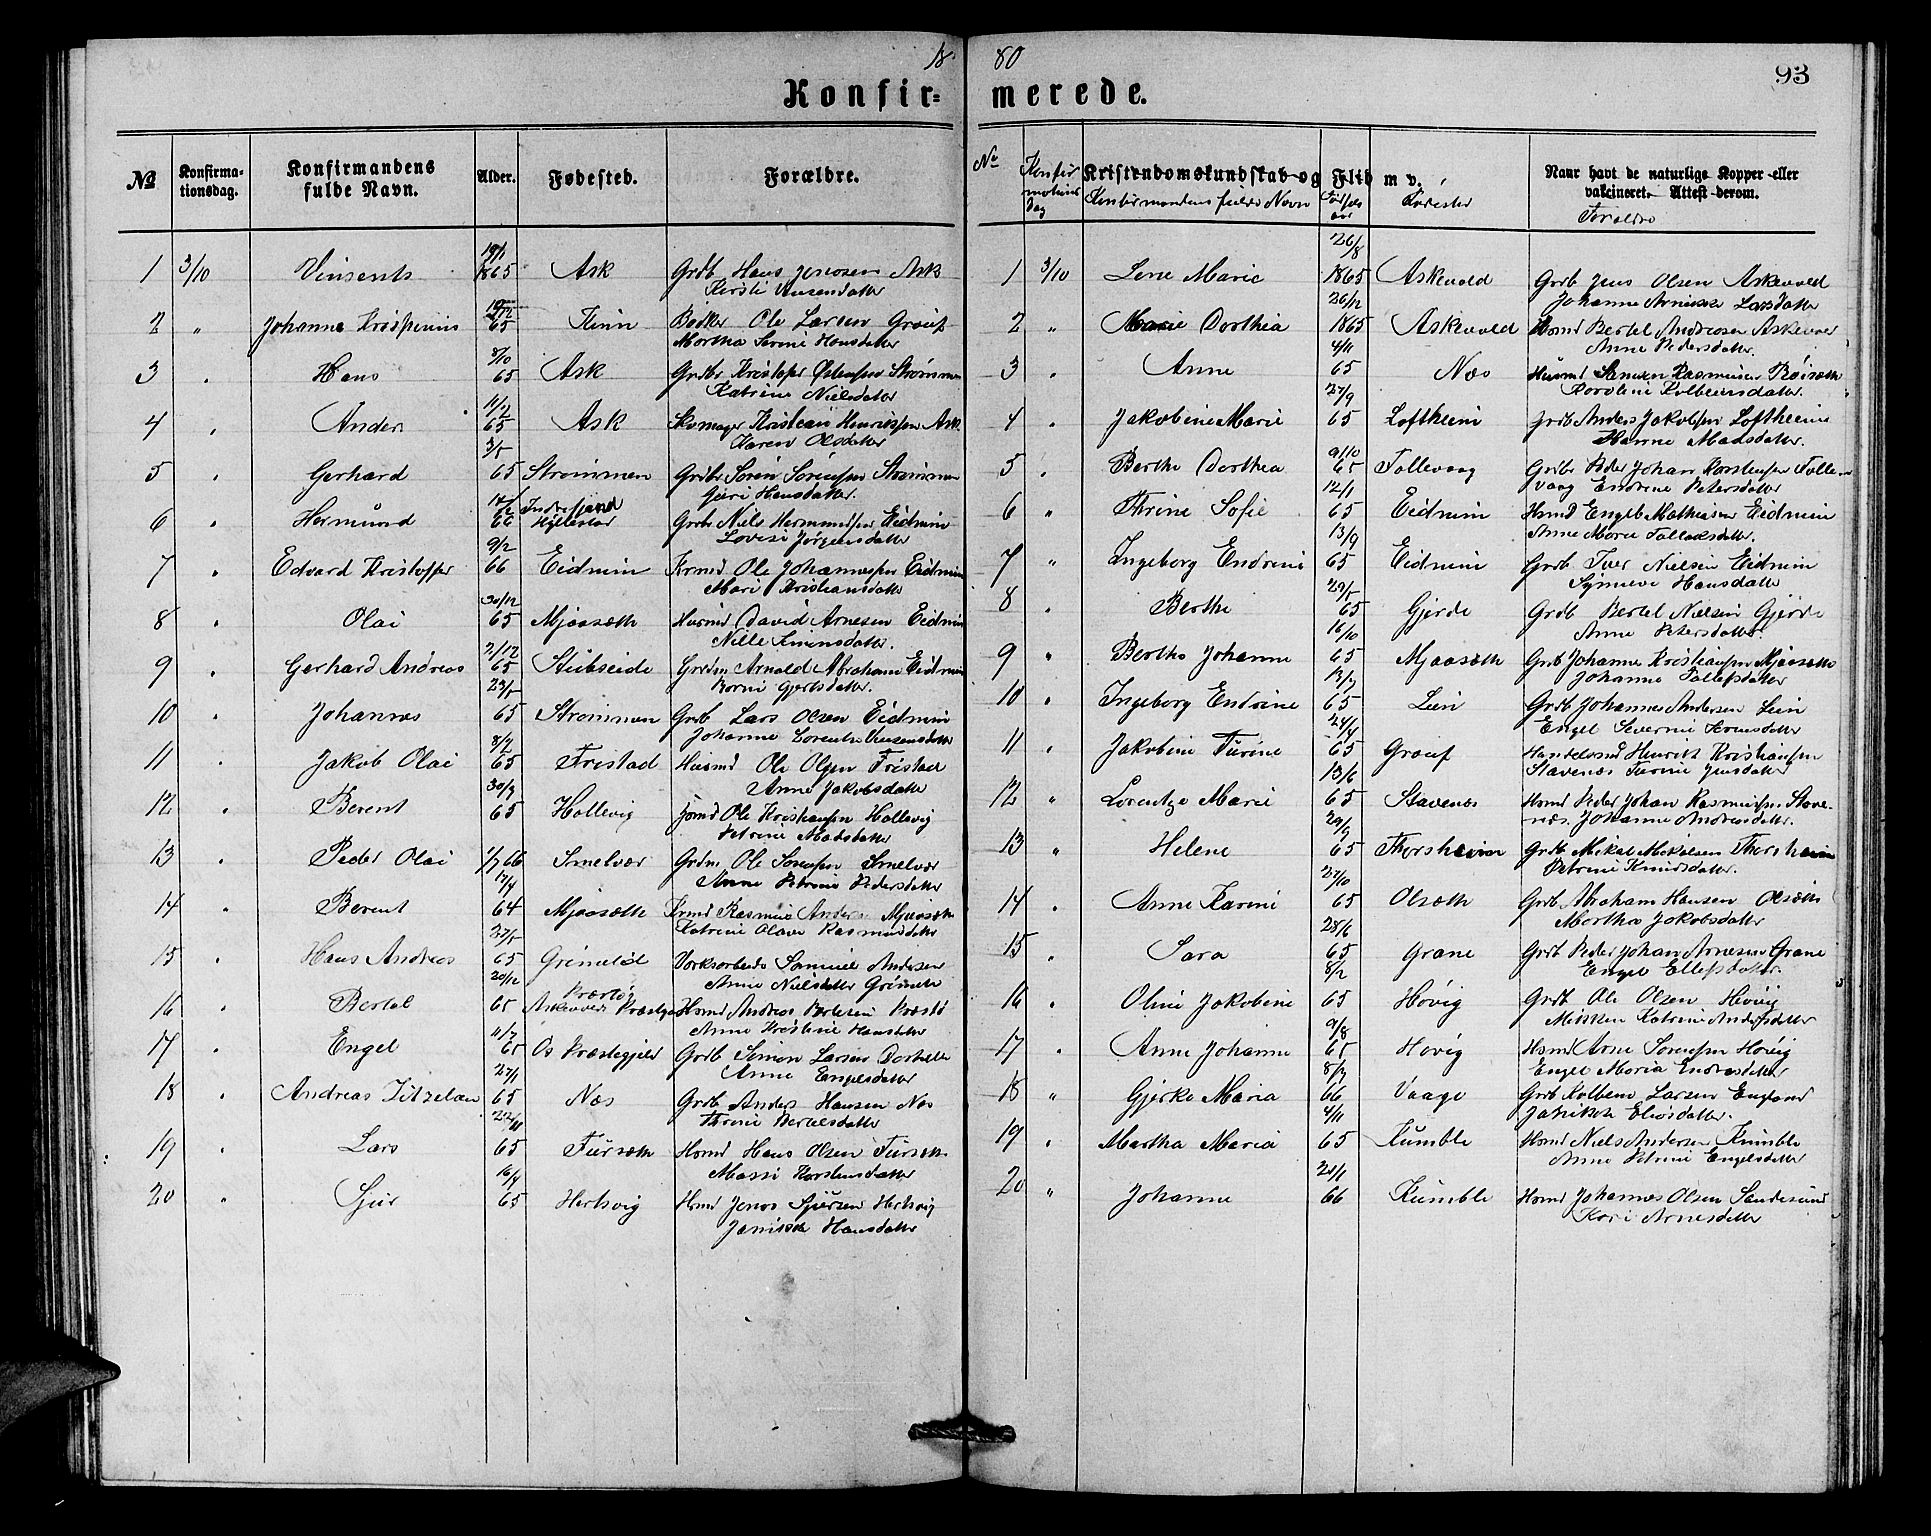 18
80
93
Konfir= merede.
No Konfirmationsdag. Konfirmandens fulde Navn. Alder. Fødested. Forældre.
1 3/10 Vinsents 19/1 1865 Ask Grdb Hans Jensen Ask
Kirsti Vinsensdatter
2 " Johannes Krispinius 65 Kinn Bødker Ole Larsen Grøuf
Martha Serine Hansdatter
3 " Hans 8/10 65 Ask Grdbr Kristofer Østensen Strømmen
Katrine Nielsdatter
4 " Anders 11/2 65 Ask Skomager Kristian Henriksen Ask
Karen Olsdatter
5 " Gerhard 3/5 65 Strømmen Grdbr Søren Sørensen Strømmen
Guri Hansdatter.
6 " Hermund 66 Indrefjord Hyllestad Grdbr Niels Hermundsen Eidmin
Lovise Jørgensdatter
7 " Edvard Kristoffer 9/2 66 Eidmin Krmd Ole Johannesen Eidmin
Mari Kristiansdatter
8 " Olai 30/12 65 Mjaasæth Husmd David Arnesen Eidmin
Nille Simonsdatter.
9 " Gerhard Andreas 2/12 65 Stubseide Grdm Arnold Abraham Eidmin
Gjertsdatter.
10 " Johannes 23/5 65 Strømmen Grdb Lars Olsen Eidmin
Johanne Lorentse Vinsensdatter
11 " Jakob Olai 8/7 65 Fristad Husmd Ole Olsen Fristad
Anne Jakobsdatter
12 " Berent 30/9 65 Hollevig Ole Kristiansen Hollevig
Petrine Madsdatter
13 " Peder Olai 1/7 66 Smelvær Grdm Ole Sørensen Smelvær
Anne Petrine Pedersdatter
14 " Berent 17/4 64 Mjaasæth Krmd Rasmus Anders Mjaasæth
Katrine Olave Rasmusdatter
15 " Hans Andreas 27/5 65 Grimelid Værksarbeider Samuel Andersen
Anne Nielsdatter Grimelid
16 " Bertel 20/12 65 Præstø Askevold Præstegj Husmd Andreas Bertelsen Præstø
Anne Kristine Hansdatter
17 " Engel 11/7 65 Os Præstegjeld Grdb Simon Larsen
Anne Engelsdatter
18 " Andreas Zitzelan 27/1 65 Næs Grdb Anders Hansen Næs
Thrine Bertelsdatter
19 " Lars 22/11 65 Fursæth Husmd Hans Olsen Fursæth
Massi Karstensdatter
20 " Sjur 16/4 65 Hertsvig Husmd Jonas Sjursen Hertsvig
Jannikke Hansdatter
No Konfirmationsdag Kristendomskundskab og Flid m v. Naar havt de naturlige Kopper eller vaksineret. Attest derom.
Konfirmandens fulde Navn Fødsels aar Fødested Forældre
1 3/10 Lene Marie 26/8 1865 Askevold Grdb Jens Olsen Askevold
Johanne Arnikke Larsdatter
2 " Marie Dorthea 26/12 1865 Askevold Husmd Bertel Andreasen Askevold
Anne Pedersdatter.
3 " Anne 4/11 65 Næs Husmd Simon Rasmusen Røisæth
Karoline Kolbeinsdatter.
4 " Jakobine Marie 27/9 65 Loftheim Grdb Anders Jakobsen Loftheim
Hanne Madsdatter.
5 " Berthe Dorthea 9/10 65 Follevaag Grdbr Peder Johan Karstensen Follevaag
Endrine Petersdatter
6 " Thrine Sofie 12/1 65 Eidmin Husmd Engelb Mathiasen Eidmin
Anne Marie Tollaksdatter.
7 " Ingeborg Endrine 13/9 65 Eidmin Grdb Iver Nielsen Eidmin
Synneve Hansdatter
8 " Berthe 29/5 65 Gjerde Grdb Bertel Nielsen Gjerde
Anne Petersdatter.
9 " Berthe Johanne 16/10 65 Mjaasæth Grdb Johannes Kristiansen Mjaasæth
Johanne Tollefsdatter
10 " Ingeborg Endrine 13/7 65 Lien Grdb Johannes Andersen Lien
Engel Severine Hermsdatter
11 " Jakobine Turine 24/4 65 Grøuf Handelsmd Henrik Kristiansen
Stavenæs Turine Jensdatter
12 " Lorentze Marie 13/6 65 Stavenæs Husmd Peder Johan Rasmussen Stavenæs.
Johanne Andreasdatter.
13 " Helene 29/9 65 Thorsheim Grdb Mikal Mikalsen Thorsheim
Petrine Knudsdatter.
14 " Anne Karine 27/10 65 Olsæth Grdb Abraham Hansen Olsæth
Martha Jakobsdatter
15 " Sara 28/6 65 Grane Grdb Peder Johan Arnesen Grane
Engel Ellefsdatter.
16 " Oline Jakobine 8/2 65 Høvig Grdb Ole Olsen Høvig
Mikken Katrine Andersdatter
17 " Anne Johanne 9/8 65 Høvig Husmd Arne Sørensen Høvig
Engel Maria Endresdatter
18 " Gjerke Maria 8/3 66 Vaage Grdb Kolbein Larsen Engsand
Jannikke Eliasdatter.
19 " Martha Maria 4/11 65 Kumble Husmd Niels Andersen Kumble
Anne Petrine Engelsdatter
20 " Johanne 20/1 66 Kumble Husmd Johannes Olsen Sandesund
Kari Arnesdatter